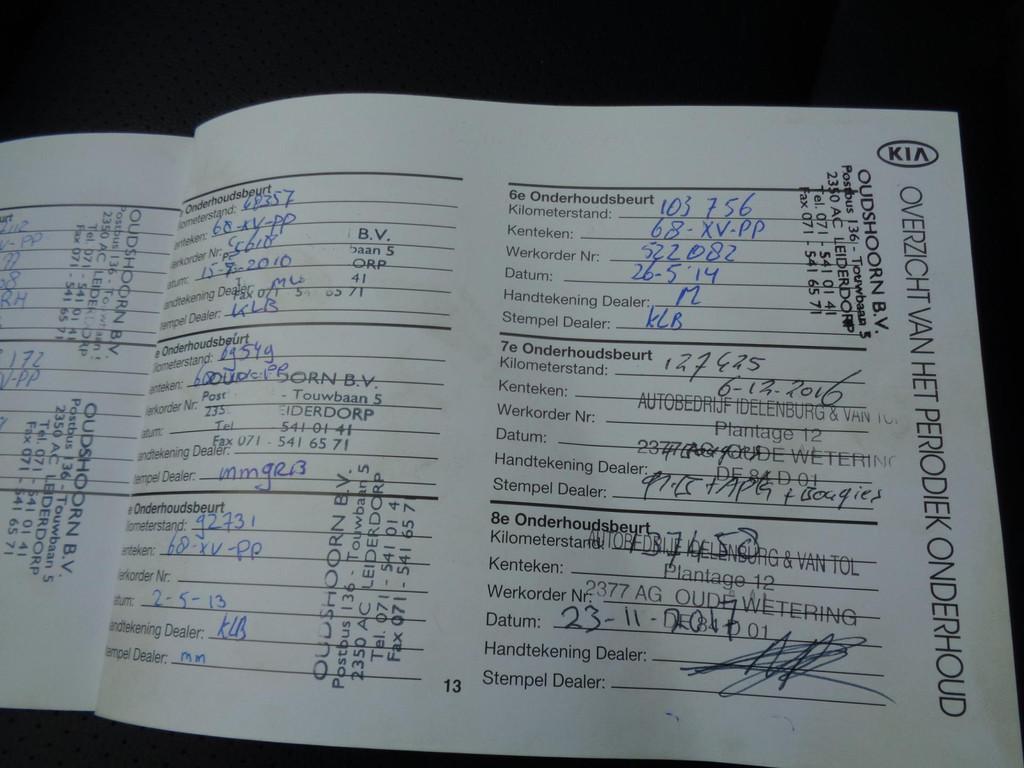 172
V-PP
OUDSHOORN B.V.
Postbus 136 - Touwbaan 5
2350 AC LEIDERDORP
Tel. 071 - 541 01 41
Fax 071 - 541 65 71
OUDSHOORN B.V.
Postbus 136 - Touwbaan 5
2350 AC LEIDERDORP
Tel. 071 - 541 01 41
Fax 071 - 541 65 71
e Onderhoudsbeurt
ilometerstand: 48357
enteken: 68-XV-PP
erkorder Nr:
B.V.
baan 5
atum: 15-7-2010
ORP
andtekening Dealer:
41
Fax 071 65 71
tempel Dealer: KLB
e Onderhoudsbeurt
lometerstand: 69549
enteken:
OORN B.V.
erkorder Nr: Post - Touwbaan 5
235 EIDERDORP
atum: Tel 541 01 41
Fax 071 - 541 65 71
andtekening Dealer:
tempel Dealer: mmgRB
e Onderhoudsbeurt
lometerstand: 92731
enteken: 68-XV-PP
erkorder Nr:
atum: 2-5-13
andtekening Dealer: KLB
empel Dealer: mm
OUDSHOORN B.V.
Postbus 136 - Touwbaan 5
2350 AC LEIDERDORP
Tel. 071 - 541 01 4
Fax 071 - 541 65 7
13
6e Onderhoudsbeurt
Kilometerstand: 103 756
Kenteken: 68-XV-PP
Werkorder Nr: 522082
Datum: 26-5-14
Handtekening Dealer: M
Stempel Dealer: KLB
OUDSHOORN B.V.
Postbus 136 - Touwbaan 5
2350 AC LEIDERDORP
Tel. 071 - 541 01 41
Fax 071 - 541 65 71
7e Onderhoudsbeurt
Kilometerstand: 127425
Kenteken: 6-12-2016
Werkorder Nr: AUTOBEDRIJF IDELENBURG & VAN TOL
Plantage 12
Datum: 2377 AG OUDE WETERING
Handtekening Dealer:
Stempel Dealer: + APK + Bougies
8e Onderhoudsbeurt
Kilometerstand: AUTOBEDRIJF IDELENBURG & VAN TOL
Kenteken: Plantage 12
Werkorder Nr: 2377 AG OUDE WETERING
Datum: 23-11-2017
Handtekening Dealer:
Stempel Dealer:
KIA
OVERZICHT VAN HET PERIODIEK ONDERHOUD